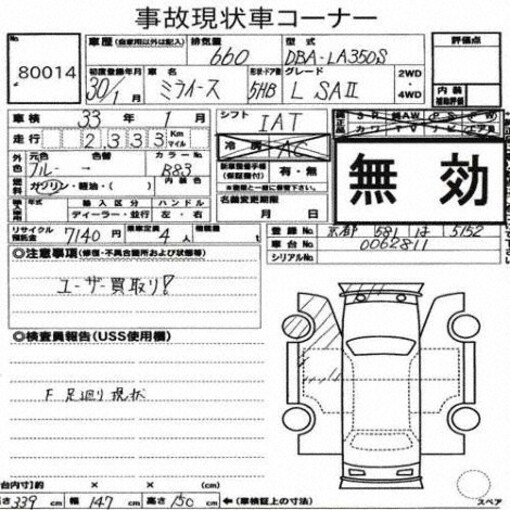 事故現状車コーナー
No. 80014
車歴 (自家用以外は記入) 排気量 660 型式 DBA-LA350S 評価点
初度登録年月 30年1月 車名 ミライース 形状・ドア数 5HB グレード L SAⅡ 2WD・4WD 内装補助評価
車検 33年1月 シフト IAT
走行 2,333 Km マイル 冷房 AC
外色 元色 ブルー → 色替 カラーNo. B83
燃料 ガソリン・軽油・( ) 内装色
有・無
輸入車用 年式 輸入区分 ディーラー・並行 ハンドル 左・右
名義変更期限 月 日
無効
リサイクル預託金 7140円 乗車定員 4人 積載量 t
登録No. 京都 581 は 5152
車台No. 0062811
シリアルNo.
◎注意事項 (修復・不具合箇所および状態等)
ユーザー買取り!
◎検査員報告(USS使用欄)
F 足廻り現状
台内寸)約 × × (cm)
長さ 339 cm 幅 147 cm 高さ 150 cm ←(車検証上の寸法)
スペア